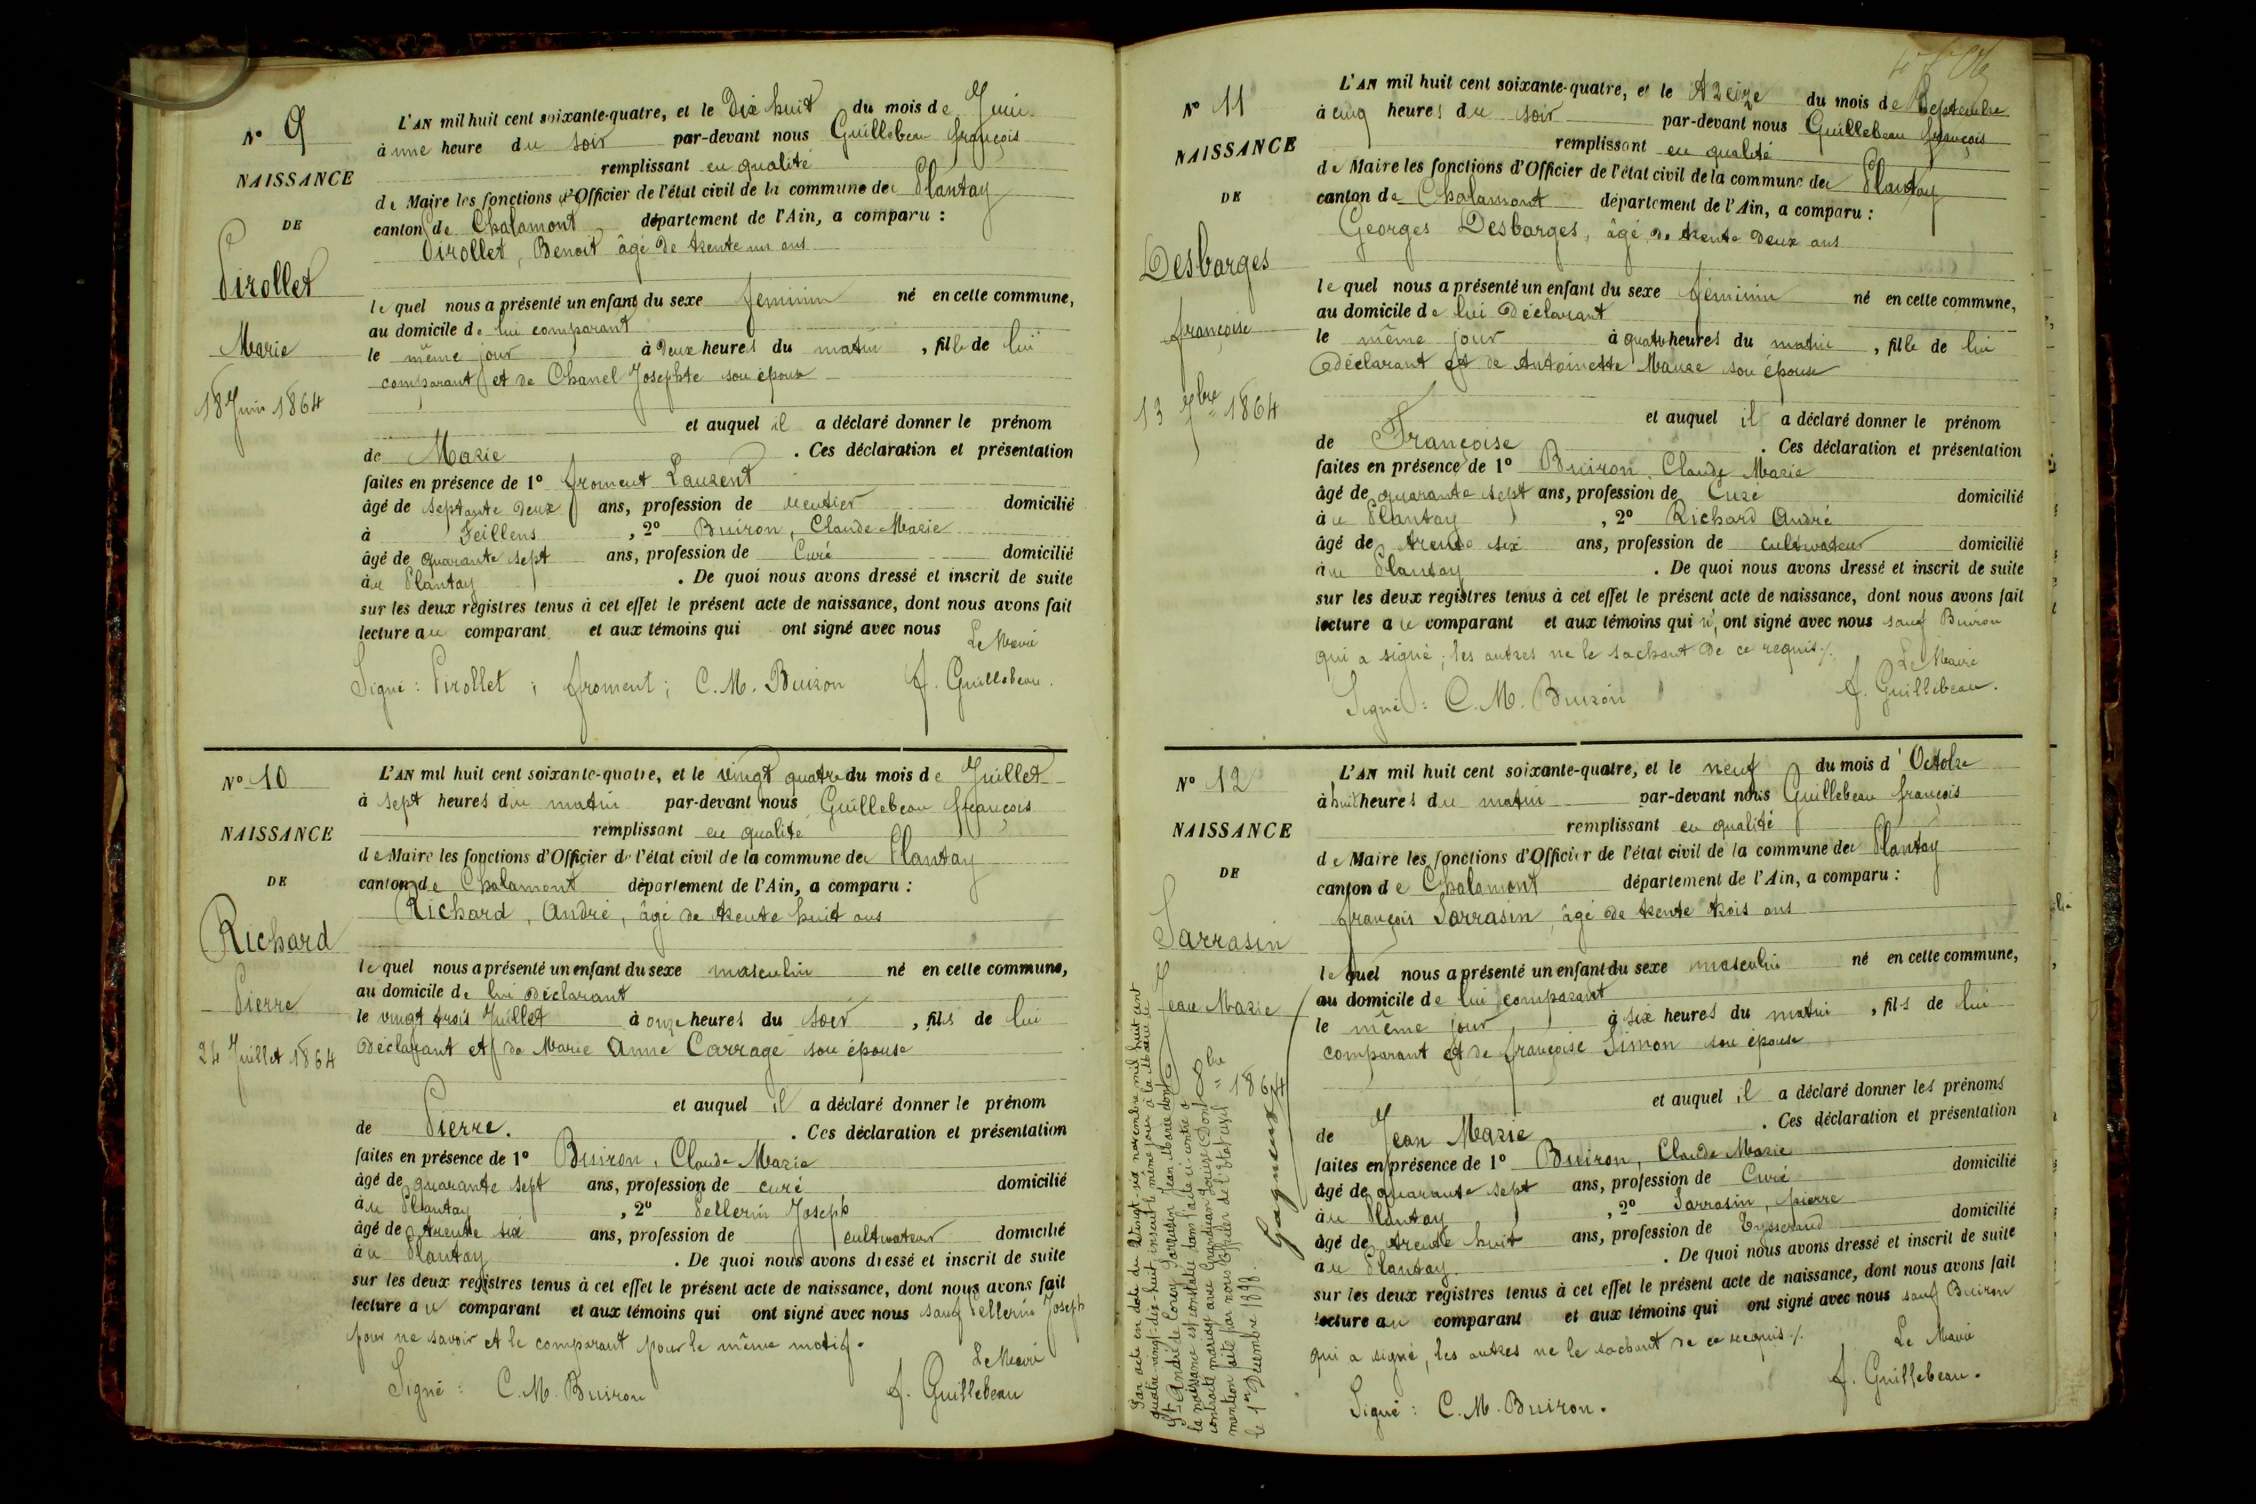 N° 9
NAISSANCE
DE
Pirollet
Marie
18 Juin 1864
L'AN mil huit cent soixante-quatre, et le Dix huit du mois de Juin
à une heure du soir par-devant nous Guillebeau françois
remplissant en qualité
de Maire les fonctions d'Officier de l'état civil de la commune de Plantay
canton de Chalamont département de l'Ain, a comparu :
Pirollet, Benoit âgé de trente un ans
le quel nous a présenté un enfant du sexe feminin né en cette commune,
au domicile de lui comparant
le même jour à Deux heures du matin, fille de lui
comparant et de Chanel Josephte son épouse
et auquel il a déclaré donner le prénom
de Marie. Ces déclaration et présentation
faites en présence de 1° froment Laurent
âgé de septante deux ans, profession de rentier domicilié
à Feillens, 2° Buiron, Claude Marie
âgé de quarante sept ans, profession de Curé domicilié
au Plantay. De quoi nous avons dressé et inscrit de suite
sur les deux registres tenus à cet effet le présent acte de naissance, dont nous avons fait
lecture au comparant et aux témoins qui ont signé avec nous
Le Maire
Signé : Pirollet ; froment ; C. M. Buiron f. Guillebeau.
N° 10
NAISSANCE
DE
Richard
Pierre
24 Juillet 1864
L'AN mil huit cent soixante-quatre, et le vingt quatre du mois de Juillet
à sept heures du matin par-devant nous Guillebeau françois
remplissant en qualité
de Maire les fonctions d'Officier de l'état civil de la commune de Plantay
canton de Chalamont département de l'Ain, a comparu :
Richard, André, âgé de trente huit ans
le quel nous a présenté un enfant du sexe masculin né en cette commune,
au domicile de lui Déclarant
le vingt trois Juillet à onze heures du soir, fils de lui
Déclarant et de Marie Anne Carrage son épouse
et auquel il a déclaré donner le prénom
de Pierre. Ces déclaration et présentation
faites en présence de 1° Buiron, Claude Marie
âgé de quarante sept ans, profession de curé domicilié
au Plantay, 2° Pellerin Joseph
âgé de trente six ans, profession de cultivateur domicilié
au Plantay. De quoi nous avons dressé et inscrit de suite
sur les deux registres tenus à cet effet le présent acte de naissance, dont nous avons fait
lecture au comparant et aux témoins qui ont signé avec nous sauf Pellerin Joseph
pour ne savoir et le comparant pour le même motif.
Le Maire
Signé : C. M. Buiron f. Guillebeau
N° 11
NAISSANCE
DE
Desbarges
françoise
13 7bre 1864
L'AN mil huit cent soixante-quatre, et le treize du mois de Septembre
à cinq heures du soir par-devant nous Guillebeau françois
remplissant en qualité
de Maire les fonctions d'Officier de l'état civil de la commune de Plantay
canton de Chalamont département de l'Ain, a comparu :
Georges Desbarges, âgé de trente Deux ans
le quel nous a présenté un enfant du sexe féminin né en cette commune,
au domicile de lui Déclarant
le même jour à quatre heures du matin, fille de lui
Déclarant et de Antoinette Mause son épouse
et auquel il a déclaré donner le prénom
de Françoise. Ces déclaration et présentation
faites en présence de 1° Buiron, Claude Marie
âgé de quarante sept ans, profession de Curé domicilié
au Plantay, 2° Richard André
âgé de trente six ans, profession de cultivateur domicilié
au Plantay. De quoi nous avons dressé et inscrit de suite
sur les deux registres tenus à cet effet le présent acte de naissance, dont nous avons fait
lecture au comparant et aux témoins qui n', ont signé avec nous sauf Buiron
qui a signé ; les autres ne le sachant De ce requis ⁒
Le Maire
Signé : C. M. Buiron f. Guillebeau.
N° 12
NAISSANCE
DE
Sarrasin
Jean Marie
9 8bre 1864
L'AN mil huit cent soixante-quatre, et le neuf du mois d'Octobre
à huit heures du matin par-devant nous Guillebeau françois
remplissant en qualité
de Maire les fonctions d'Officier de l'état civil de la commune de Plantay
canton de Chalamont département de l'Ain, a comparu :
françois Sarrasin, âgé de trente trois ans
le quel nous a présenté un enfant du sexe masculin né en cette commune,
au domicile de lui comparant
le même jour à six heures du matin, fils de lui
comparant et de françoise Simon son épouse
et auquel il a déclaré donner les prénoms
de Jean Marie. Ces déclaration et présentation
faites en présence de 1° Buiron, Claude Marie
âgé de quarante sept ans, profession de Curé domicilié
au Plantay, 2° Sarrasin, pierre
âgé de trente huit ans, profession de Tysserand domicilié
au Plantay. De quoi nous avons dressé et inscrit de suite
sur les deux registres tenus à cet effet le présent acte de naissance, dont nous avons fait
lecture au comparant et aux témoins qui ont signé avec nous sauf Buiron
qui a signé, les autres ne le sachant de ce requis ⁒
Le Maire
Signé : C. M. Buiron. f. Guillebeau.
Par acte en date du vingt six novembre mil huit cent
quatre-vingt-dix-huit, inscrit le même jour à la Mairie de
St André de Corcy, Sarrasin Jean Marie dont
la naissance est constatée dans l'acte ci-contre a
contracté mariage avec Grandjean Louise (Dont
mention faite par nous Officier de l'Etat civil
le 1er Décembre 1898.
Gagneux